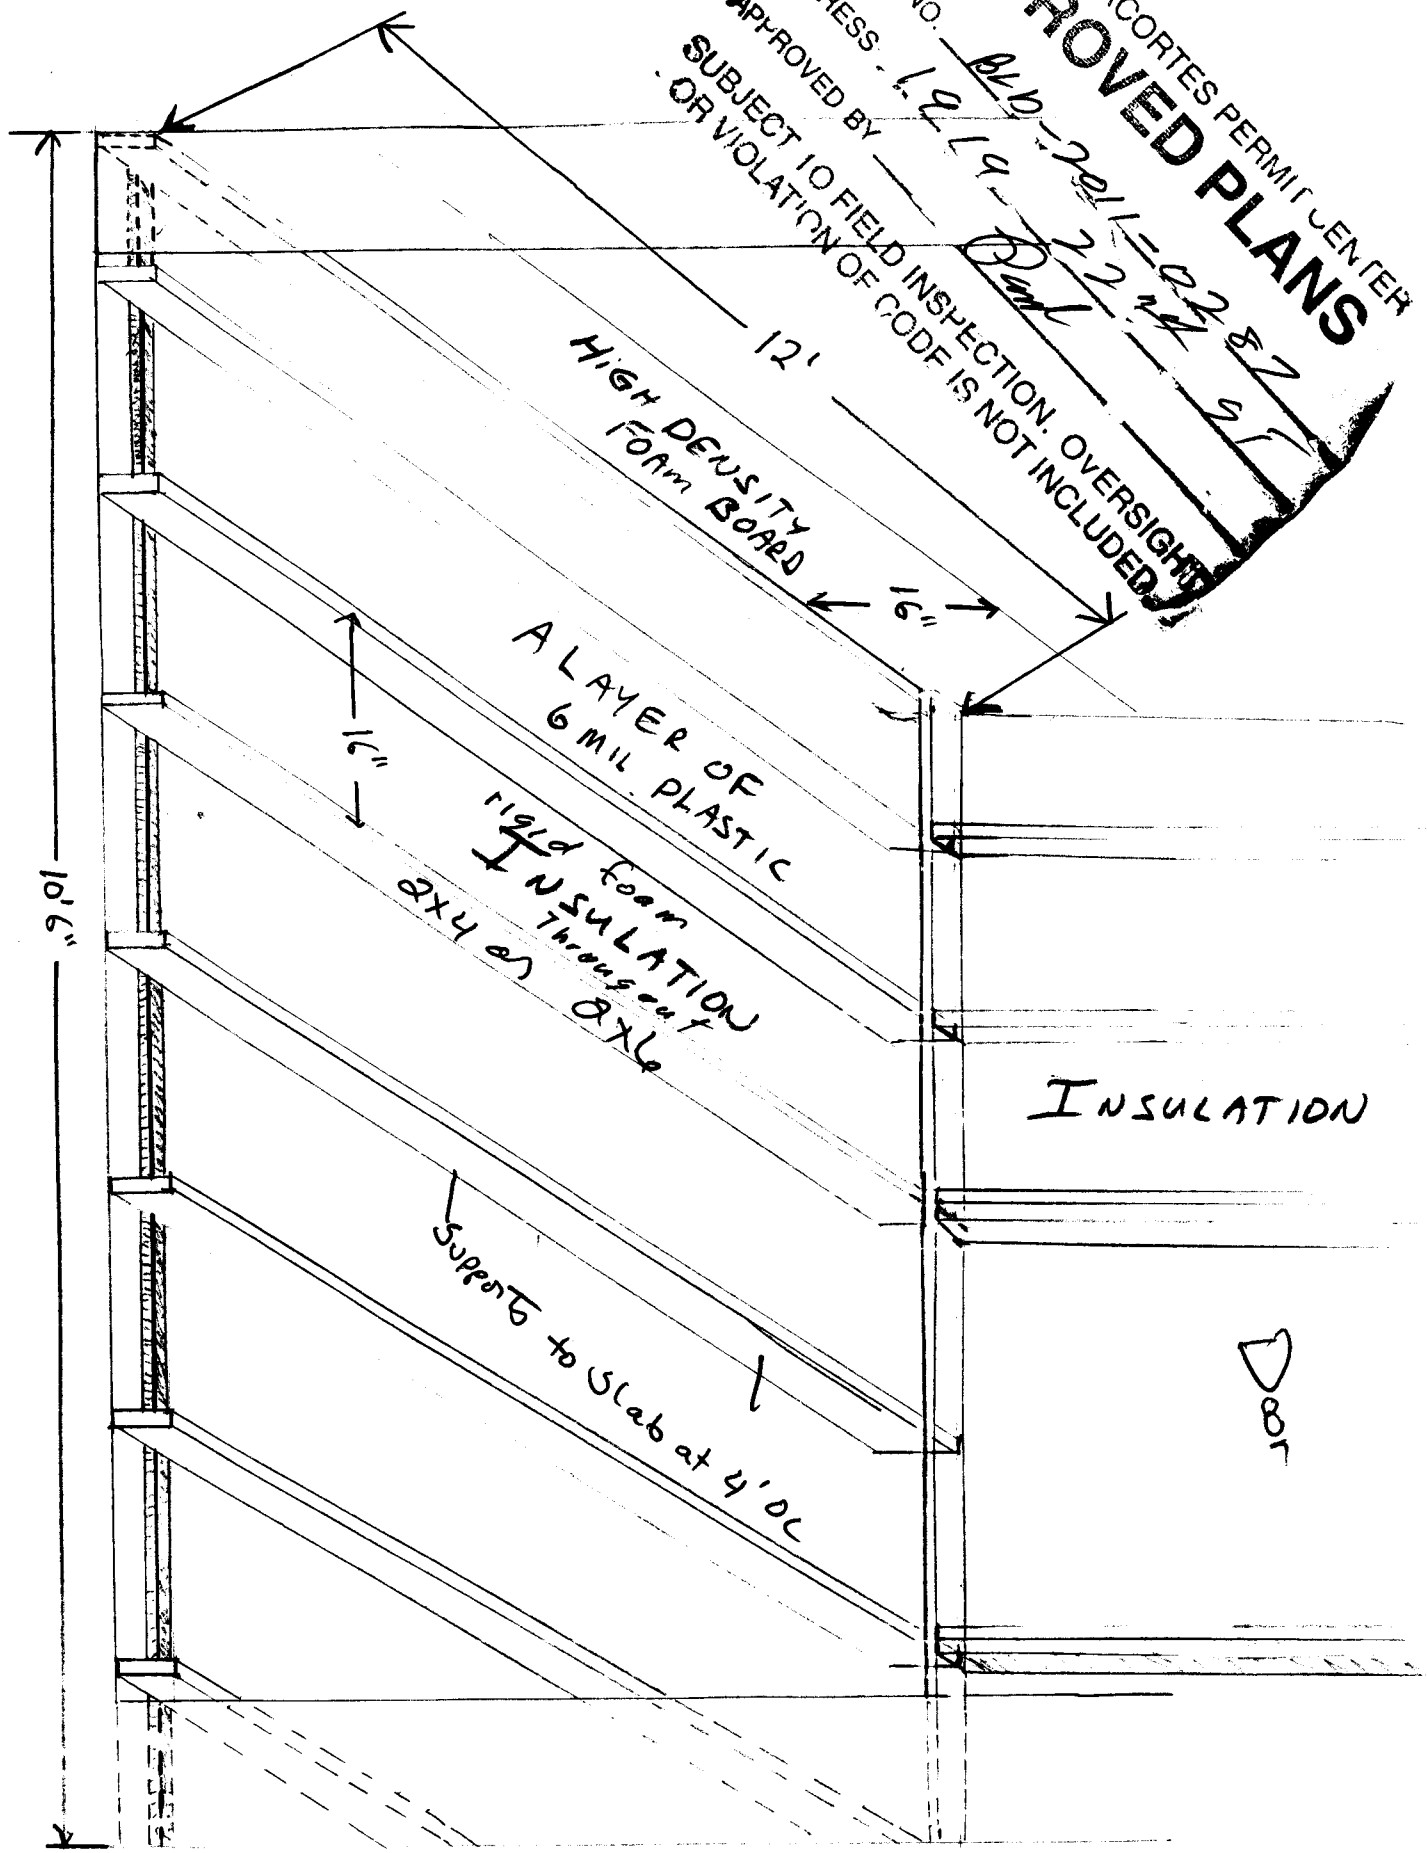 ACORTES PERMIT CENTER
ROVED PLANS
NO. BLD-2011-0287
RESS 1919 22nd ST
APPROVED BY
SUBJECT TO FIELD INSPECTION. OVERSIGHT
OR VIOLATION OF CODE IS NOT INCLUDED
12'
HIGH DENSITY
FOAM BOARD
16"
A LAYER OF
6 MIL PLASTIC
16"
rigid foam
INSULATION
Througout
2X4 or 2X6
10'6"
INSULATION
Supports to Slab at 4' OC
Br